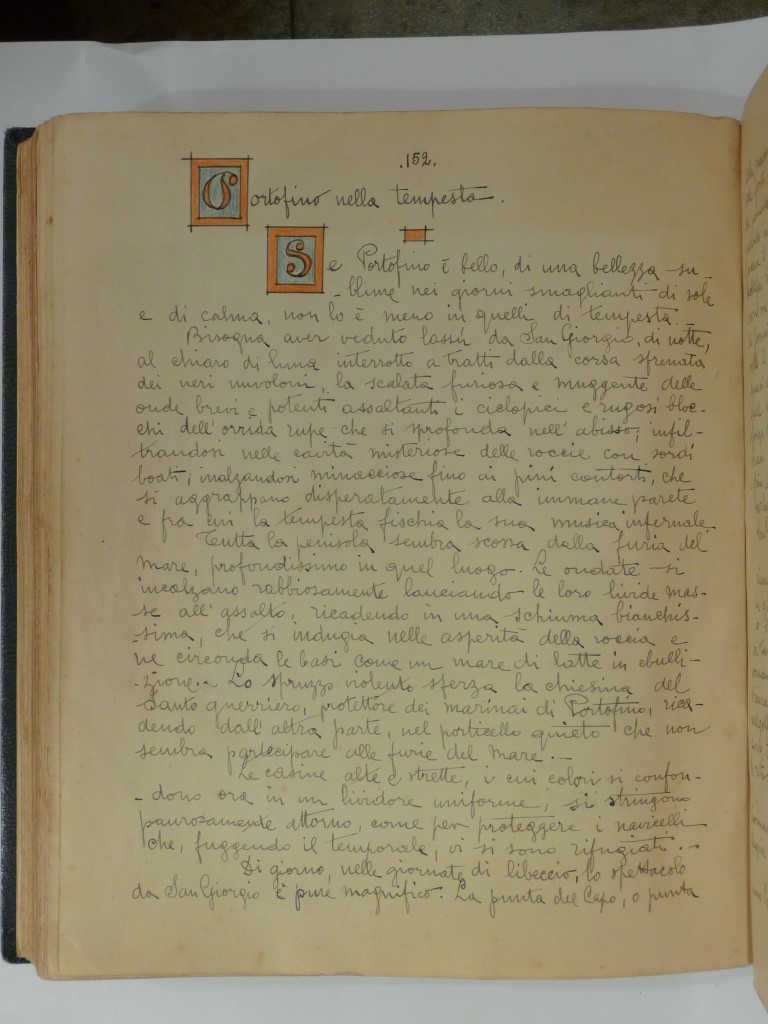 .152.
Portofino nella tempesta.
Se Portofino è bello, di una bellezza su-
-blime nei giorni smaglianti di sole
e di calma, non lo è meno in quelli di tempesta.-
Bisogna aver veduto lassù da San Giorgio, di notte,
al chiaro di luna interrotto a tratti dalla corsa sfrenata
dei neri nuvoloni, la scalata furiosa e muggente delle
onde brevi e potenti assaltanti i ciclopici e rugosi bloc-
chi dell'orrida rupe che si sprofonda nell'abisso, infil-
trandosi nelle cavità misteriose delle roccie con sordi
boati; inalzandosi minacciose fino ai pini contorti, che
si aggrappano disperatamente alla immane parete
e fra cui la tempesta fischia la sua musica infernale.
Tutta la penisola sembra scossa dalla furia del
mare, profondissimo in quel luogo. Le ondate si
incalzano rabbiosamente lanciando le loro livide mas-
se all'assalto, ricadendo in una schiuma bianchis-
-sima, che si indugia nelle asperità della roccia e
ne circonda le basi come un mare di latte in ebulli-
-zione.- Lo spruzzo violento sferza la chiesina del
Santo guerriero, protettore dei marinai di Portofino, rica-
dendo dall'altra parte, nel porticello quieto che non
sembra partecipare alle furie del mare.-
Le casine alte e strette, i cui colori si confon-
-dono ora in un lividore uniforme, si stringono
paurosamente attorno, come per proteggere i navicelli
che, fuggendo il temporale, vi si sono rifugiati.-
Di giorno, nelle giornate di libeccio, lo spettacolo
da San Giorgio è pure magnifico. La punta del Capo, o punta